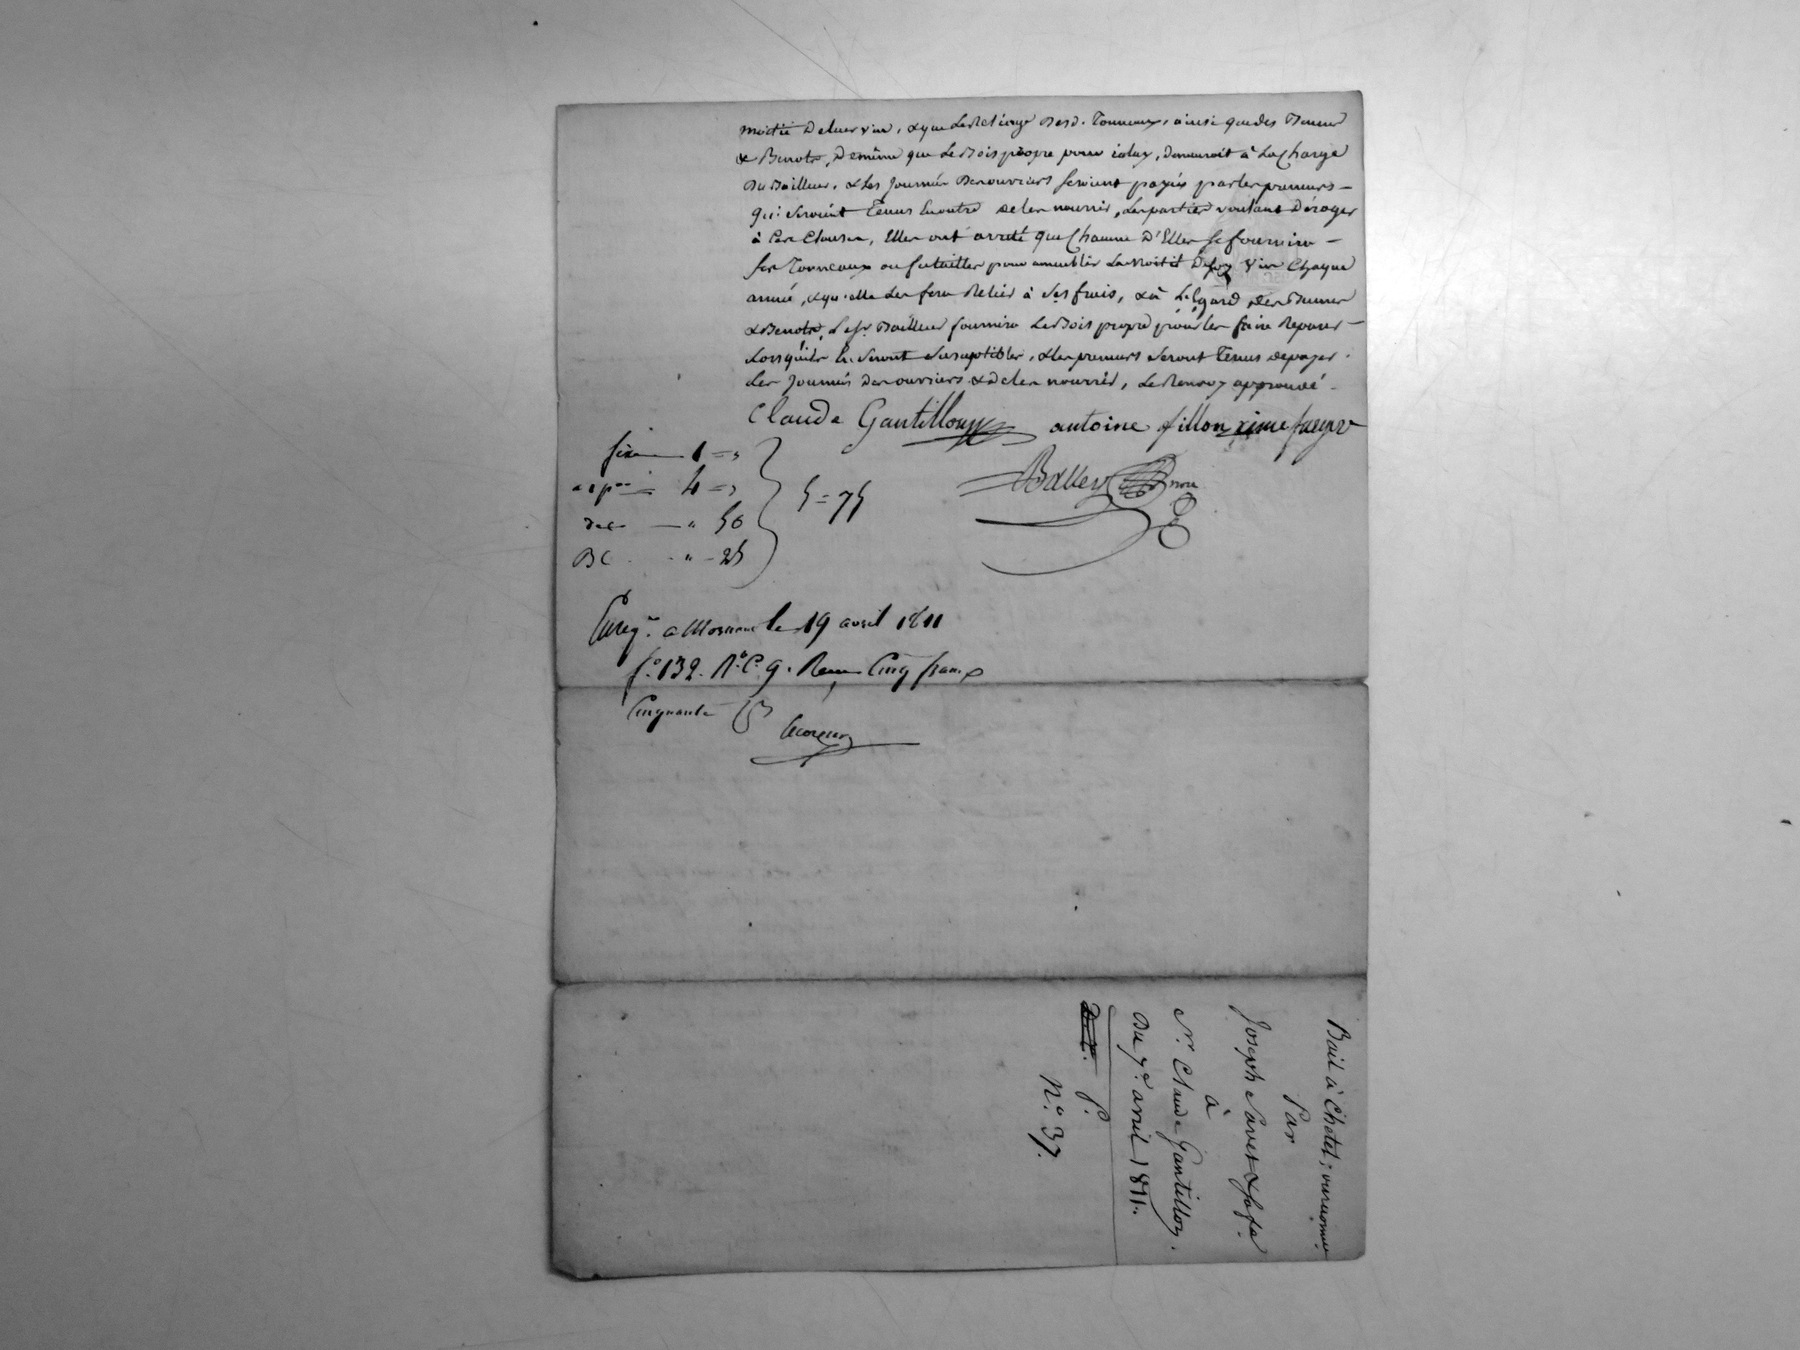 moitié de leur vin, & que le reliage desd. Tonneaux, ainsi que des Bennes
& Benots, de même que le Bois propre pour icelux, demeuroit à la Charge
du Bailleur, & les journées des ouvriers seroient payés par les preneurs
qui seroient tenus en outre de les nourrir, les parties voulant déroger
à ces clauses, Elles ont arrêté que Chacune d'Elles se fournira
ses Tonneaux ou futailles pour ameublir la moitié de son vin Chaque
année, & qu'elle les fera relier à ses frais, & à l'égard des Bennes
& Benots, le sr. Bailleur fournira le Bois propre pour les faire réparer
lorsqu'ils en seront susceptibles, & les preneurs seront tenus de payer
les journées des ouvriers & de les nourrir, le renvoy approuvé
Claude Gantillon antoine fillon
fixe 1 = "
4 = "
dec " 50
BC " - 25
5 = 75
Enreg. a Mornant le 19 avril 1811
fo. 132. Ro. C. 9. Reçu Cinq francs
Cinquante
Bail à Chetel;
Par
Joseph Savet & sa fe.
à
Sr. Claude Gantillon.
Du 7e. avril 1811.
P.
No. 37.